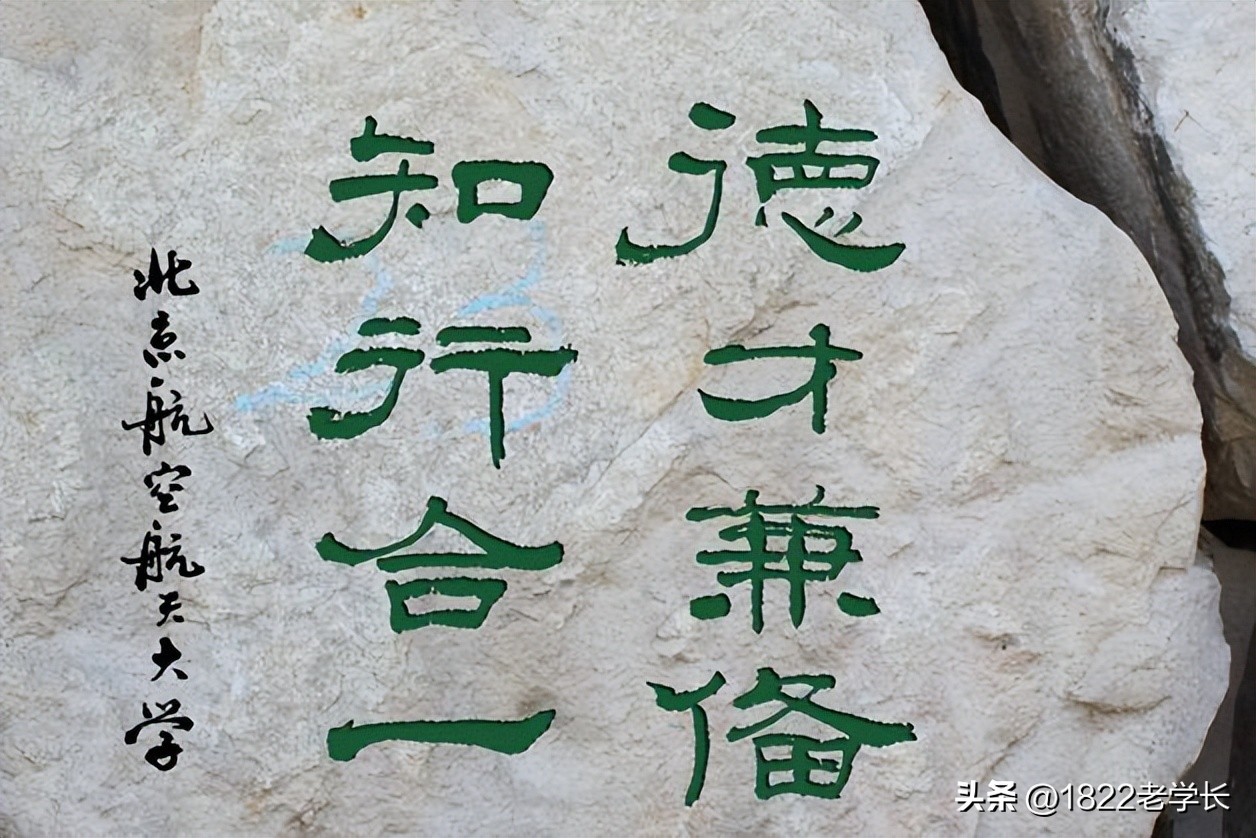 德才兼备
知行合一
北京航空航天大学
头条 @1822老学长